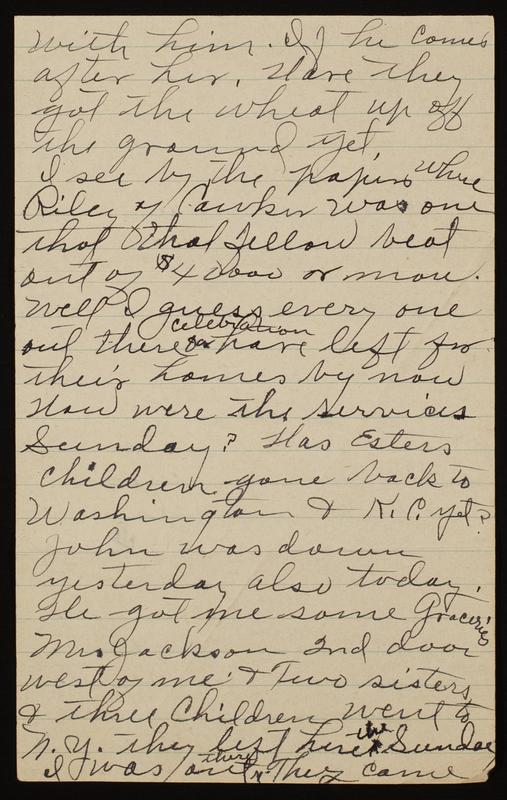 with him. If he comes
after her. Have they
got the wheat up off
the ground yet.
I see by the papers where
Riley of Cawker was one
that that fellow beat
out of $4000 or more.
Well I guess every one
celebration
out there have left for
their homes by now
How were the services
Sunday? Has Esters
children gone back to
Washington & K.C. yet?
John was down
yesterday also today.
He got me some Groceries
Mr. Jackson 2nd door
west of me & Two sisters
& three Children went to
N.Y. they left here Sunday
the
I was out there They came